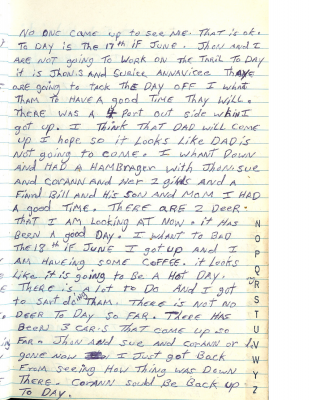 No one came up to see me. That is ok.
To day is the 17th if June. Jhon and I
are not going to work on the Trail To Day
it is Jhon.s and Surice Annavirce Thaye
are going to tack the day off I whant
Tham to have a good time Thay will.
There was a 4 Port out side whin I
got up. I Think that Dad will come
up I hope so it Looks Like Dad.is
not going to come. I whant Down
and Had a Hambrager with Jhon.sue
and Corann and Her 2 girls and a
Frind Bill and His Son and Mom I Had
a good Time. There are 2 Deer.
That I am Looking at now. it Has
Been a good Day. I whant to Bed
The 18th if June I got up and I
am Haveing some Coffee. it Looks
Like it is going to Be a Hot Day.
There is a Lot to Do and I got
to sart doing Tham. There is not no
Deer To Day so Far. There Has
Been 3 car.s That come up so
Far. Jhon and sue and Corann or is
gone now I Just got Back
From seeing How Thing was Down
There. Corann sould Be Back up
To Day.
N
O
P
Q
R
S
T
U
V
W
Y
Z